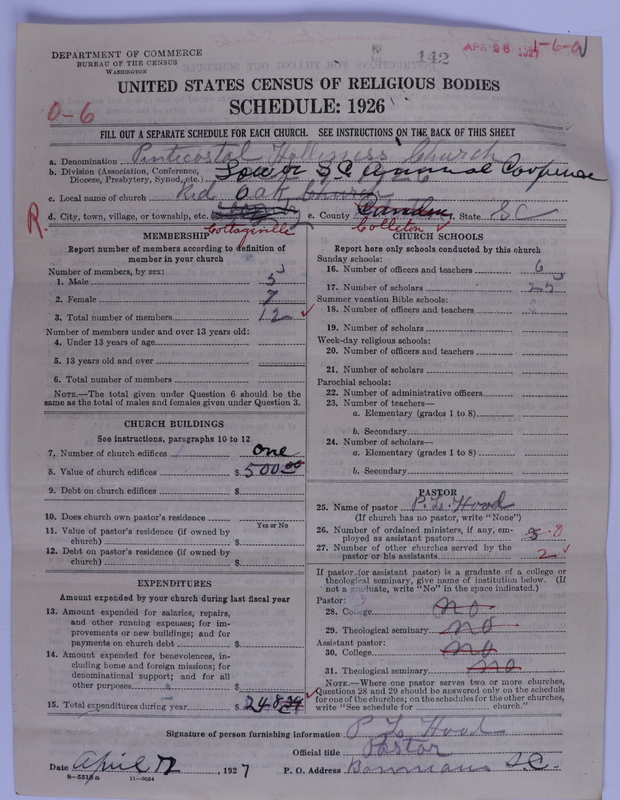 DEPARTMENT OF COMMERCE
BUREAU OF THE CENSUS
WASHINGTON
142
APR 28 1927
1-6-a
UNITED STATES CENSUS OF RELIGIOUS BODIES
SCHEDULE: 1926
O-6
FILL OUT A SEPARATE SCHEDULE FOR EACH CHURCH. SEE INSTRUCTIONS ON THE BACK OF THIS SHEET
a. Denomination Penticostal Holliness Church
b. Division (Association, Conference, Diocese, Presbytery, Synod, etc.) Lower SC Annual
c. Local name of church Red Oak Church
R.
d. City, town, village, or township, etc. Cottageville
e. County Camden Colleton
f. State SC
MEMBERSHIP
Report number of members according to definition of
member in your church
Number of members, by sex:
1. Male 5
2. Female 7
3. Total number of members 12
Number of members under and over 13 years old:
4. Under 13 years of age
5. 13 years old and over
6. Total number of members
NOTE.—The total given under Question 6 should be the
same as the total of males and females given under Question 3.
CHURCH BUILDINGS
See instructions, paragraphs 10 to 12
7. Number of church edifices one
8. Value of church edifices $ 500 00
9. Debt on church edifices $
10. Does church own pastor's residence
Yes or No
11. Value of pastor's residence (if owned by
church) $
12. Debt on pastor's residence (if owned by
church) $
EXPENDITURES
Amount expended by your church during last fiscal year
13. Amount expended for salaries, repairs,
and other running expenses; for im-
provements or new buildings; and for
payments on church debt $
14. Amount expended for benevolences, in-
cluding home and foreign missions; for
denominational support; and for all
other purposes $
15. Total expenditures during year $ 248
CHURCH SCHOOLS
Report here only schools conducted by this church
Sunday schools:
16. Number of officers and teachers 6
17. Number of scholars 25
Summer vacation Bible schools:
18. Number of officers and teachers
19. Number of scholars
Week-day religious schools:
20. Number of officers and teachers
21. Number of scholars
Parochial schools:
22. Number of administrative officers
23. Number of teachers—
a. Elementary (grades 1 to 8)
b. Secondary
24. Number of scholars—
a. Elementary (grades 1 to 8)
b. Secondary
PASTOR
25. Name of pastor P. L. Hood
(If church has no pastor, write "None")
26. Number of ordained ministers, if any, em-
ployed as assistant pastors
27. Number of other churches served by the
pastor or his assistants 2
If pastor (or assistant pastor) is a graduate of a college or
theological seminary, give name of institution below. (If
not a graduate, write "No" in the space indicated.)
Pastor:
28. College no
29. Theological seminary no
Assistant pastor:
30. College no
31. Theological seminary no
NOTE.—Where one pastor serves two or more churches,
Questions 28 and 29 should be answered only on the schedule
for one of the churches; on the schedules for the other churches,
write "See schedule for church."
Signature of person furnishing information P L Hood
Official title Pastor
Date April 12, 1927
P. O. Address Bowman S.C.
8-5518a
11-9054